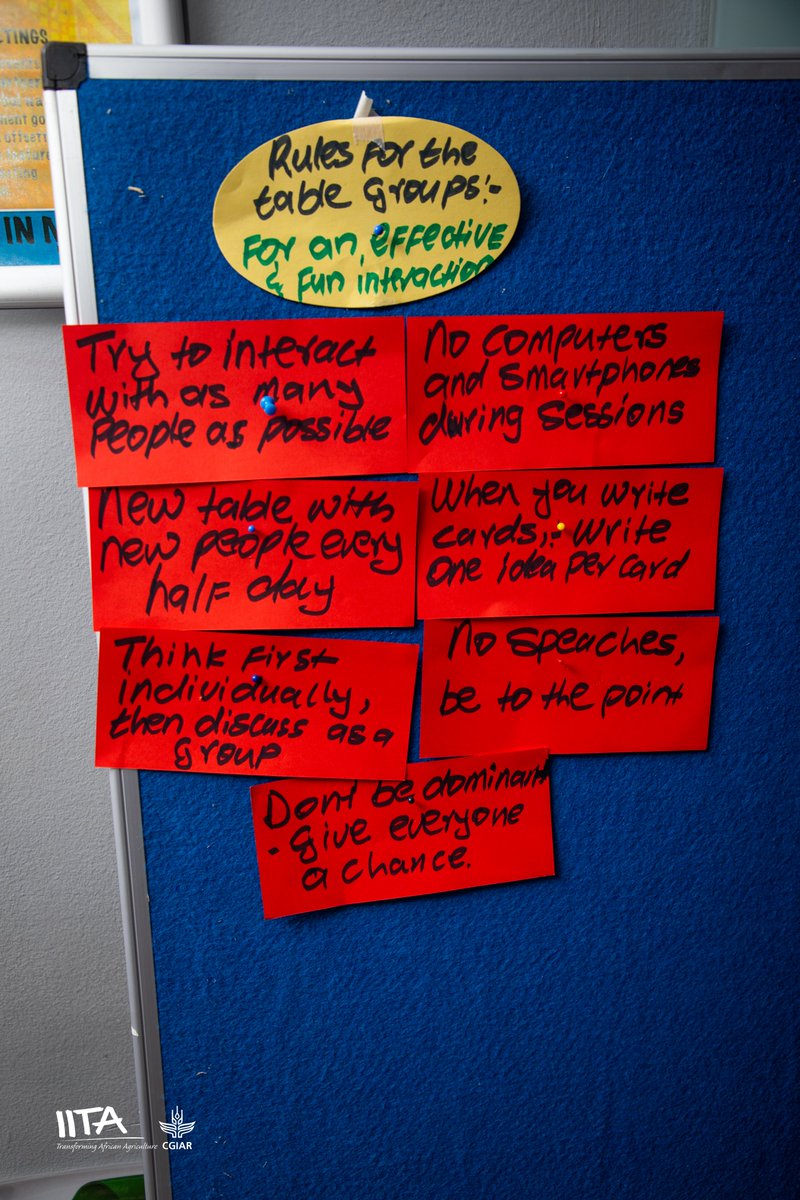 TINGS
IN
Rules for the
table Groups:-
For an effective
& fun interaction
Try to interact
with as many
people as possible
No computers
and smartphones
during sessions
New table with
new people every
half day
When you write
cards,:- write
one idea per card
Think first
individually,
then discuss as a
group
No speaches,
be to the point
Dont be dominant
- Give everyone
a chance.
IITA
Transforming African Agriculture
CGIAR